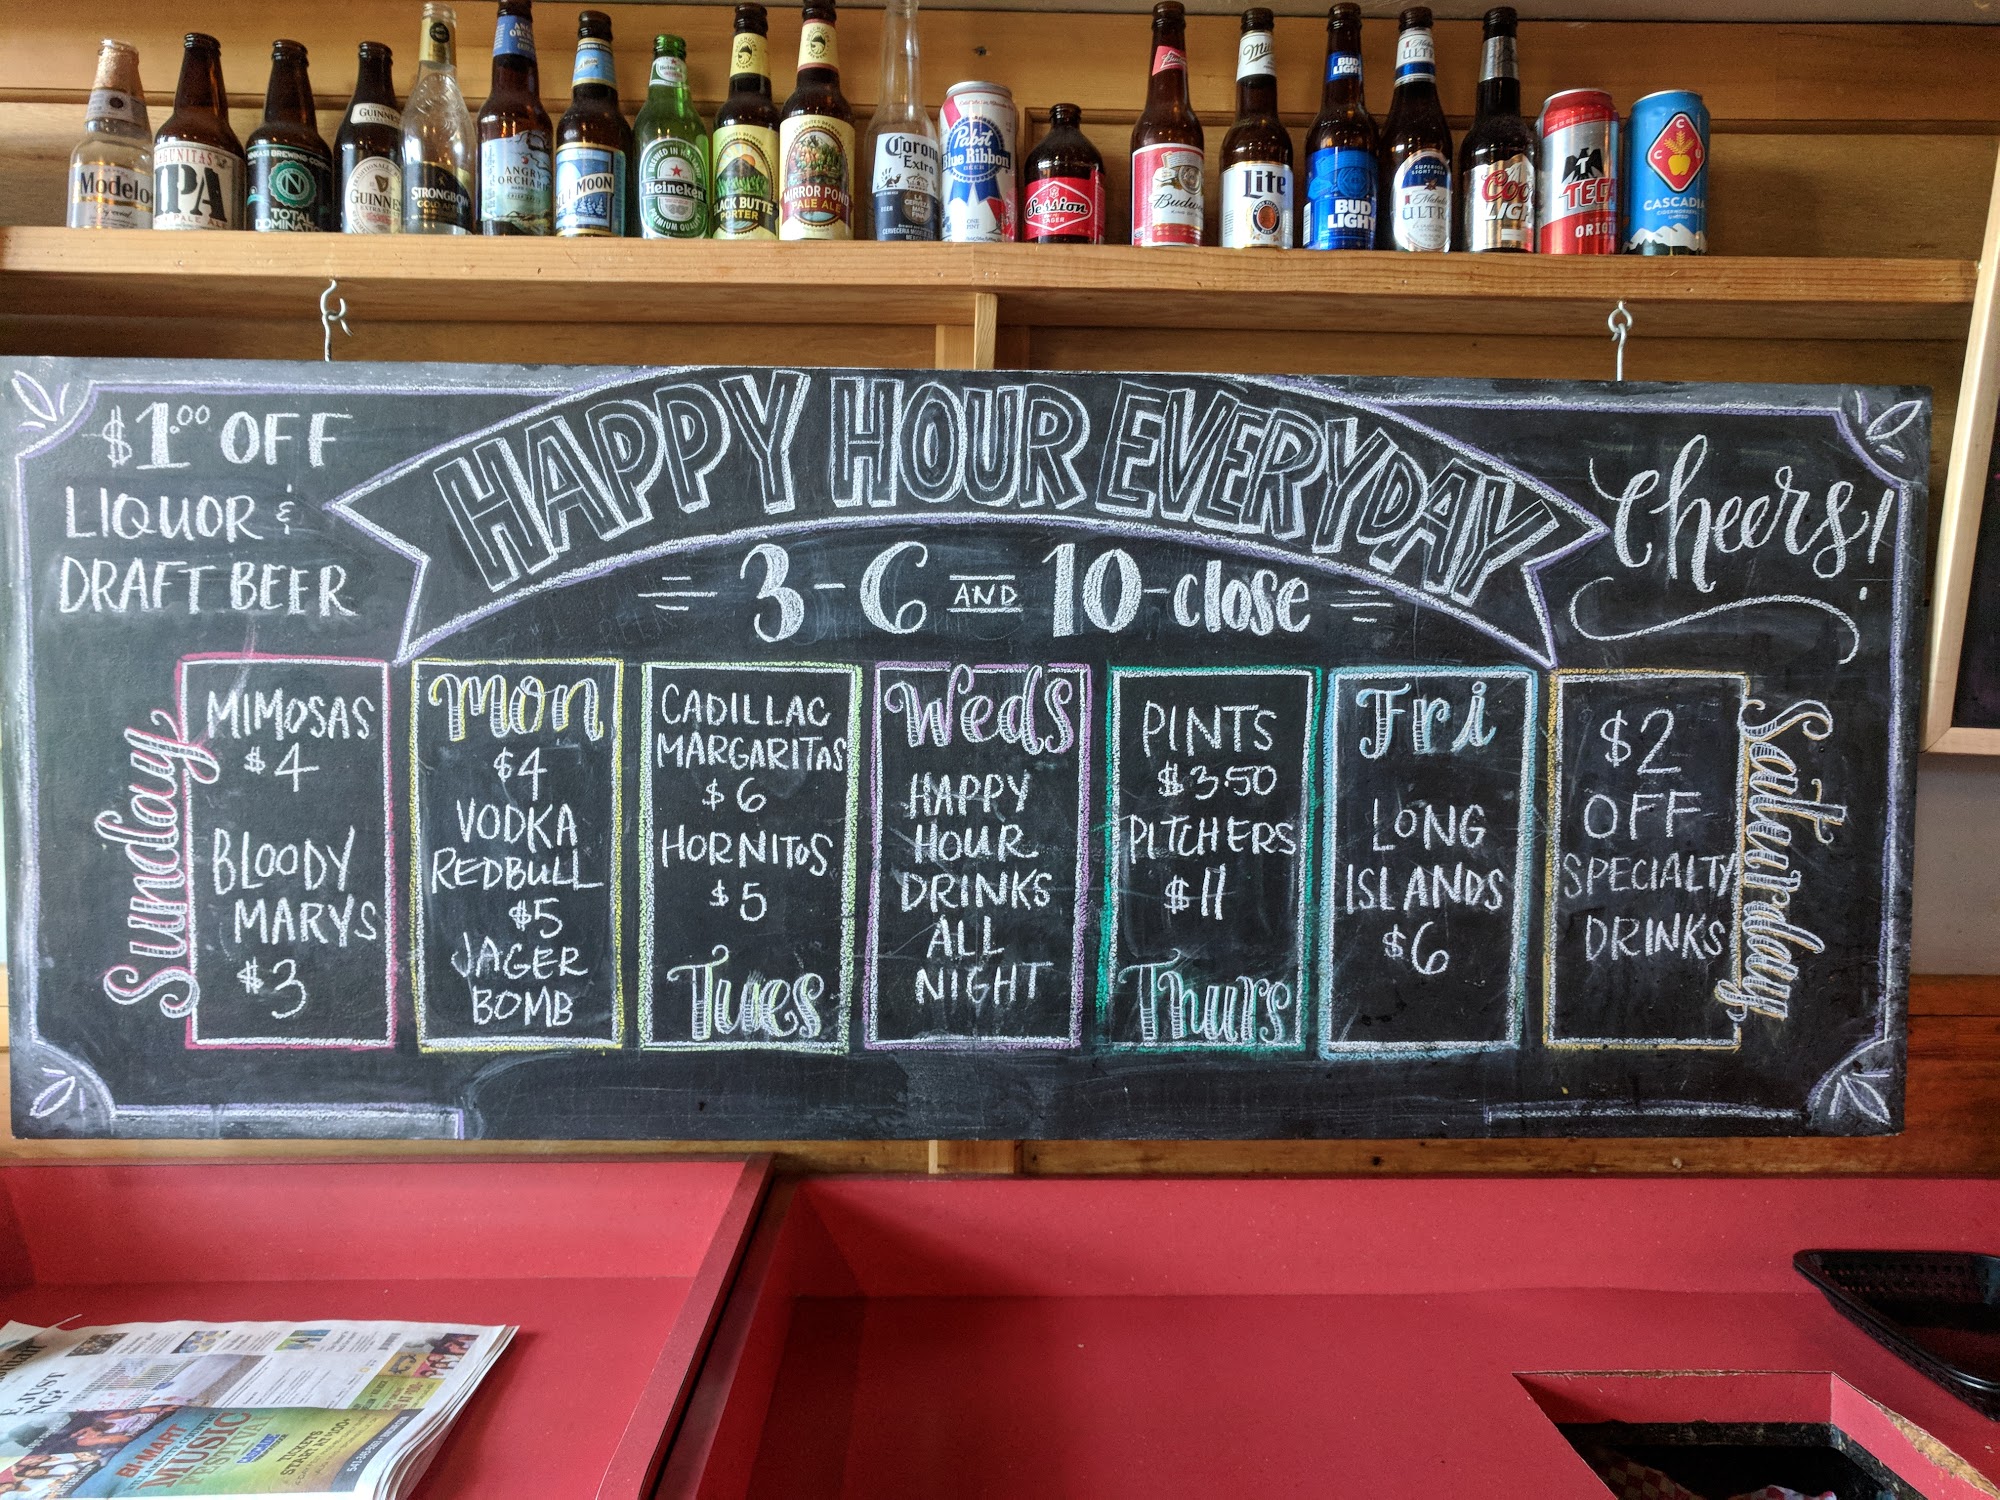 Modelo
IPA
TOTAL
DOMINATION
GUINNESS
GUINNESS
STRONGBOW
ANGRY
ORCHARD
MOON
Heineken
BLACK BUTTE
PORTER
MIRROR POND
PALE ALE
Corona
Extra
Pabst
Blue Ribbon
Session
LAGER
Lite
BUD
LIGHT
BUD
LIGHT
ULTRA
ULTRA
Coors
LIGHT
CASCADIA
$1.00 OFF
LIQUOR &
DRAFT BEER
HAPPY HOUR EVERYDAY
3-6 AND 10-close
Cheers!
Sunday
MIMOSAS
$4
BLOODY
MARYS
$3
Mon
$4
VODKA
REDBULL
$5
JAGER
BOMB
CADILLAC
MARGARITAS
$6
HORNITOS
$5
Tues
Weds
HAPPY
HOUR
DRINKS
ALL
NIGHT
PINTS
$3.50
PITCHERS
$11
Thurs
Fri
LONG
ISLANDS
$6
$2
OFF
SPECIALTY
DRINKS
Saturday
BI-MART
WILLAMETTE COUNTRY
MUSIC
FESTIVAL
TICKETS
START AT